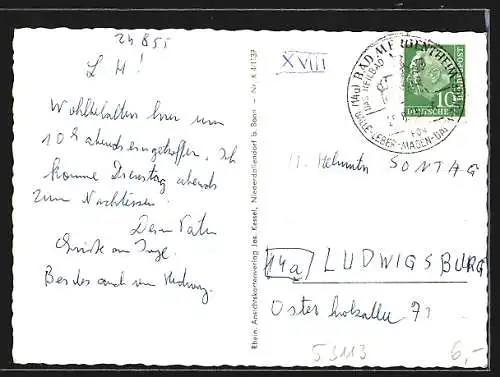 24.8.55
L H!
Wohlbehalten hier um
10 h abends eingetroffen. Ich
komme Dienstag abends
zum Nachtessen.
Dein Vater
Grüße an Inge.
Bestes auch von Hedwig.
Rhein. Ansichtskartenverlag Jos. Kessel, Niederdollendorf b. Bonn - Nr. X 44139
XVIII
(14a) BAD MERGENTHEIM
DAS HEILBAD
FÜR
GALLE-LEBER-MAGEN-DARM
DEUTSCHE BUNDESPOST
10
H. Helmuth SONTAG
14a LUDWIGSBURG
Osterholzallee 71
53113
6,-